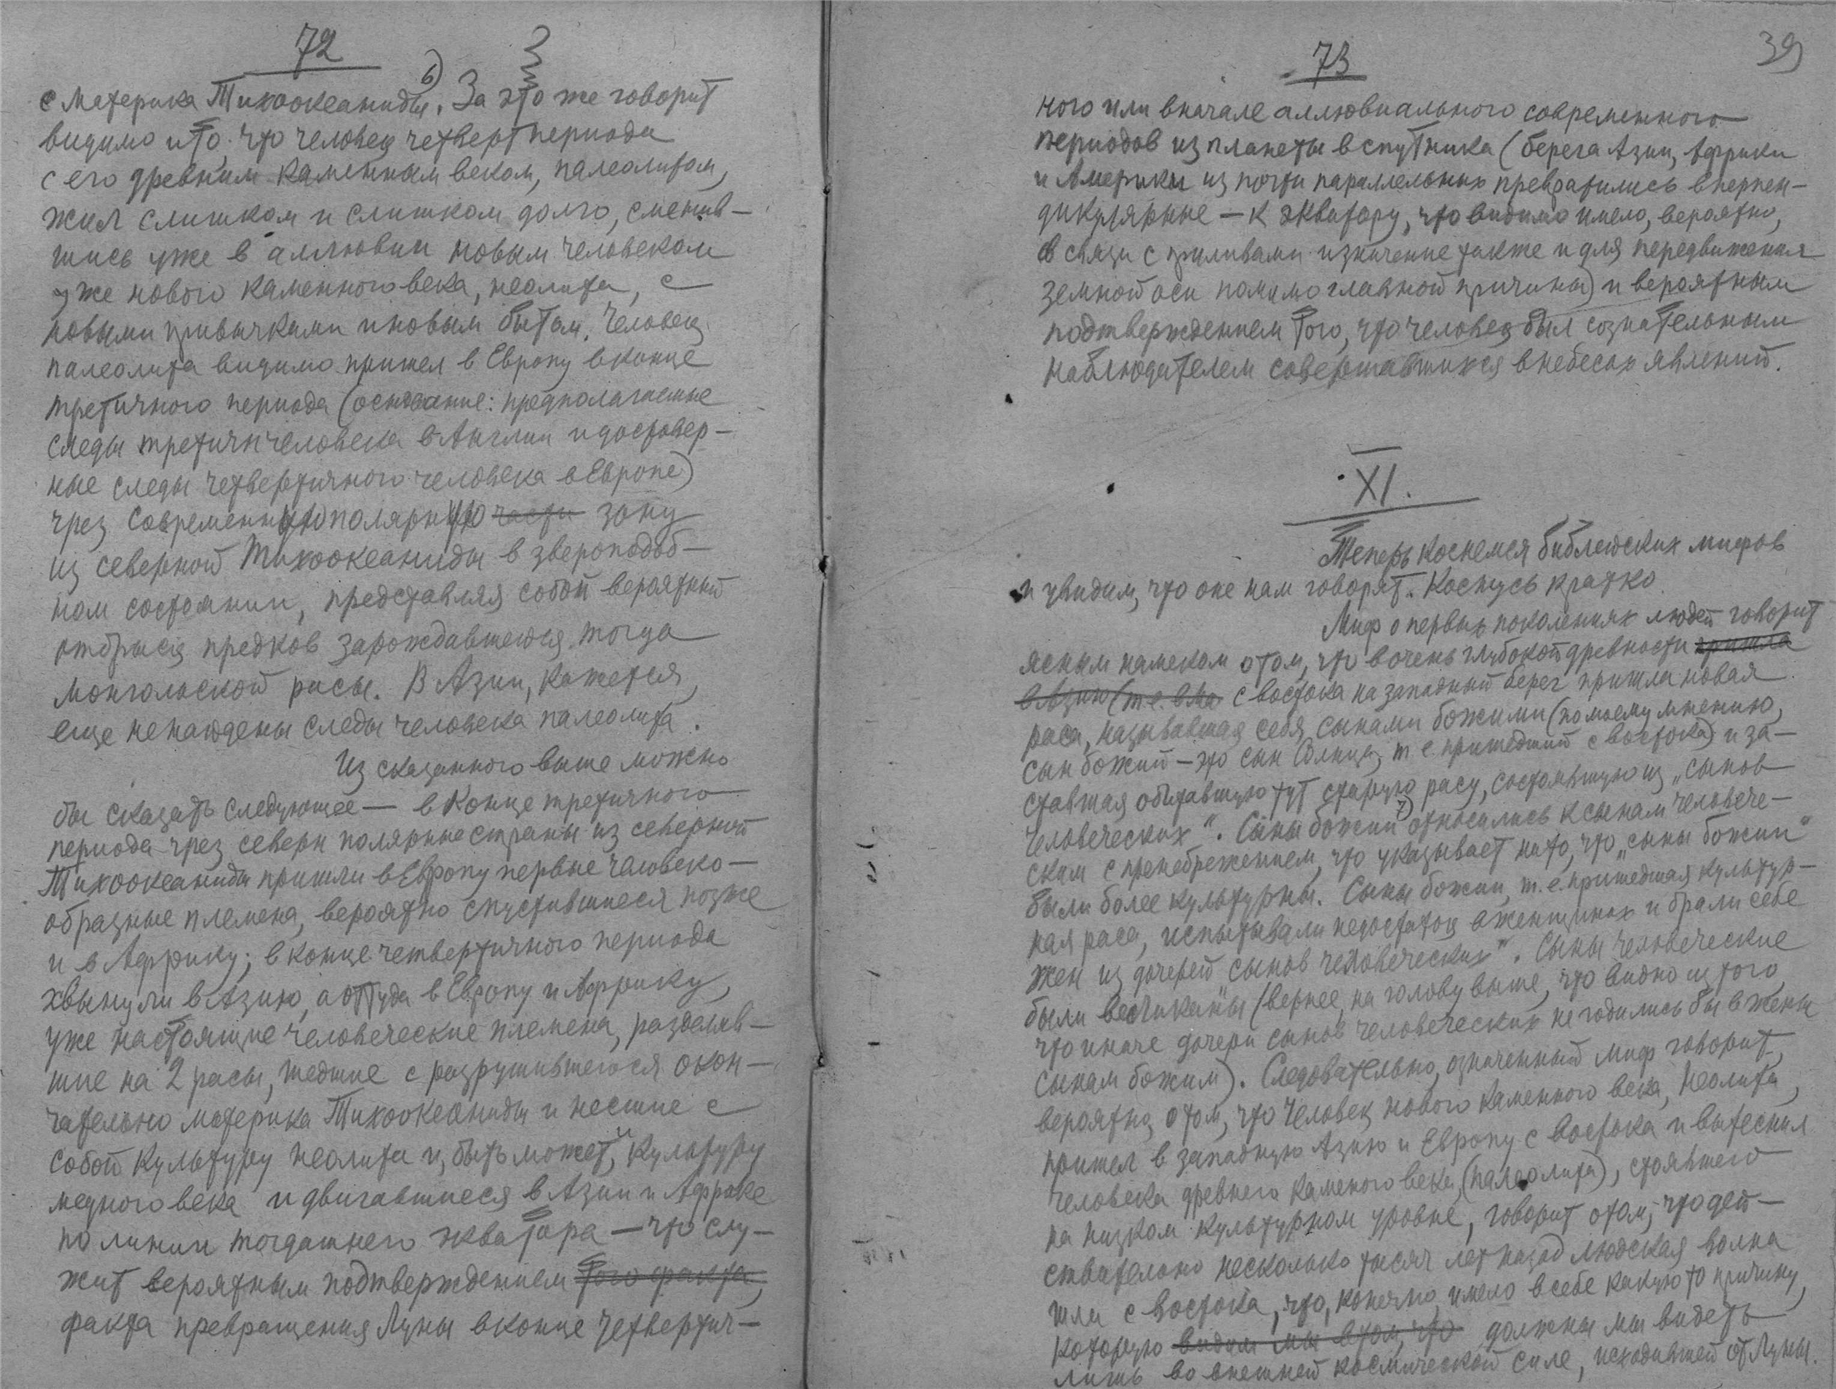 72
с материка Тихоокеаниды. 6) За это же говорит
видимо и то, что человек четверт периода
с его древним каменным веком, палеолитом,
жил слишком и слишком долго, сменив-
шись уже в аллювии новым человеком
уже нового каменного века, неолита, с
новыми привычками и новым бытом. Человек
палеолита видимо пришел в Европу в конце
третичного периода (основание: предполагаемые
следы третичн человека в Англии и достовер-
ные следы четвертичного человека в Европе)
чрез современную полярную части зону
из северной Тихоокеаниды в звероподоб-
ном состоянии, представляя собой вероятный
отбрыск предков зарождавшегося тогда
монгольской расы. В Азии, кажется,
еще не найдены следы человека палеолита.
Из сказанного выше можно
бы сказать следующее — в конце третичного
периода чрез северн полярные страны из северной
Тихоокеаниды пришли в Европу первые человеко-
образные племена, вероятно спустившиеся позже
и в Африку; в конце четвертичного периода
хлынули в Азию, а оттуда в Европу и Африку,
уже настоящие человеческие племена, разделив-
шие на 2 расы, шедшие с разрушившегося окон-
чательно материка Тихоокеаниды и несшие с
собой культуру неолита и, быть может, культуру
медного века и двигавшиеся в Азии и Африке
по линии тогдашнего экватора — что слу-
жит вероятным подтверждением того факта,
факта превращения Луны в конце четвертич-
73
39
ного или вначале аллювиального современного
периодов из планеты в спутника (берега Азии, Африки
и Америки из почти параллельных превратились в перпен-
дикулярные — к экватору, что видимо имело, вероятно,
в связи с приливами и значение также и для передвижения
земной оси помимо главной причины) и вероятным
подтверждением того, что человек был сознательным
наблюдателем совершавшихся в небесах явлений.
XI.
Теперь коснемся библейских мифов
и увидим, что они нам говорят. Коснусь кратко.
Миф о первых поколениях людей говорит
ясным намеком о том, что в очень глубокой древности пришла
в Азию (т.е. в с востока на западный берег пришла новая
раса, называвшая себя сынами божими (по моему мнению,
сын божий — это сын Солнца, т. е. пришедший с востока) и за-
ставшая обитавшую тут старую расу, состоявшую из „сынов
человеческих“. Сыны божии 7) относились к сынам человече-
ским с пренебрежением, что указывает на то, что „сыны божии“
были более культурны. Сыны божии, т.е. пришедшая культур-
ная раса, испытывали недостаток в женщинах и брали себе
жен из дочерей сынов человеческих“. Сыны человеческие
были великаны (вернее, на голову выше, что видно из того,
что иначе дочери сынов человеческих не годились бы в жены
сынам божим). Следовательно, означенный миф говорит,
вероятно, о том, что человек нового каменного века, неолита,
пришел в западную Азию и Европу с востока и вытеснил
человека древнего каменого века (палеолита), стоявшего
на низком культурном уровне, говорит о том, что дей-
ствительно несколько тысяч лет назад людская волна
шли с востока, что, конечно, имело в себе какую то причину,
которую видим мы в том, что должны мы видеть
лишь во внешней космической силе, исходившей от Луны.